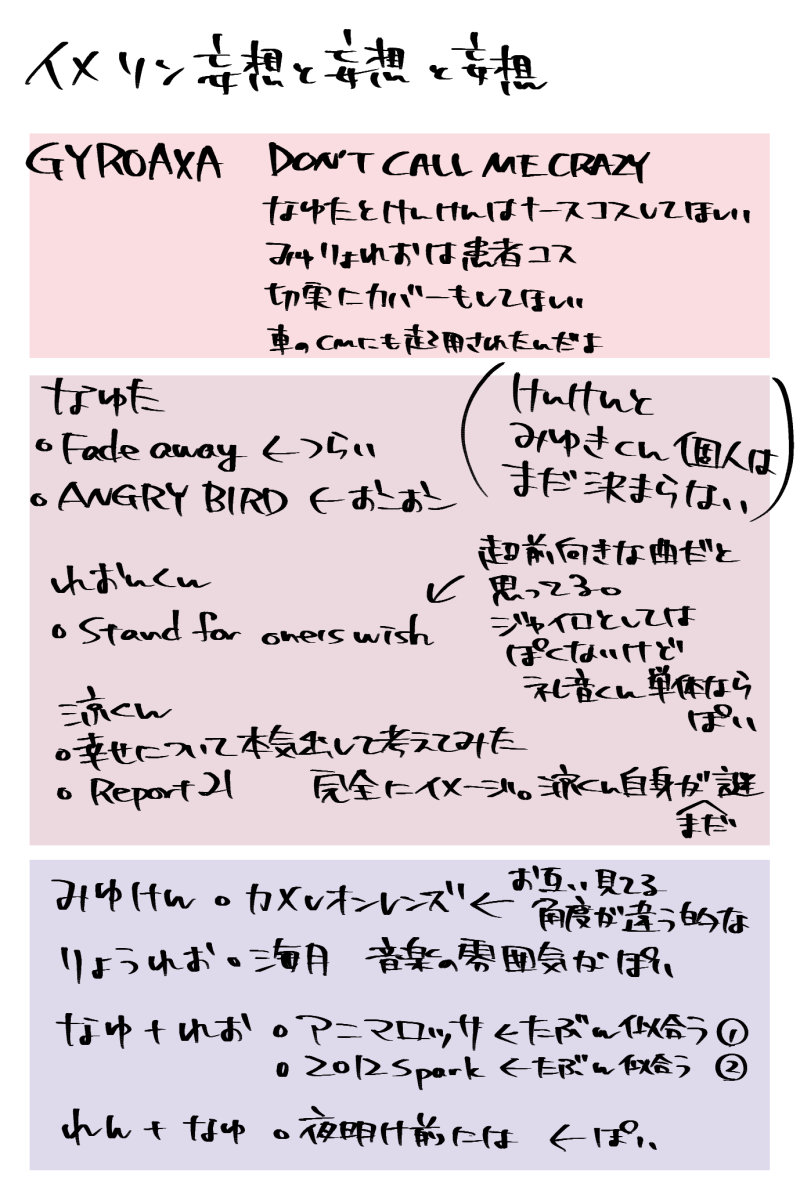 イメソン妄想と妄想と妄想
GYROAXIA DON'T CALL ME CRAZY
なゆたとけんけんはナースコスしてほしい
みゆりょれおは患者コス
切実にカバーもしてほしい
車のCMにも起用されたんだよ
なゆた
○Fade away ←つらい
○ANGRY BIRD ←おこおこ
(けんけんと
みゆきくん個人は
まだ決まらない)
れおんくん
○Stand for oners wish
↙ 超前向きな曲だと
思ってる。
ジャイロとしては
ぽくないけど
礼音くん単体なら
ぽい
涼くん
○幸せについて本気出して考えてみた
○Report 21 完全にイメージ。涼くん自身が謎
まだ
みゆけん ○カメレオンレンズ ← お互い見てる
角度が違う的な
りょうれお ○海月 音楽の雰囲気がぽい
なゆ+れお ○アニマロッサ ←たぶん似合う①
○2012Spark ←たぶん似合う②
れん+なゆ ○夜明け前には ←ぽい